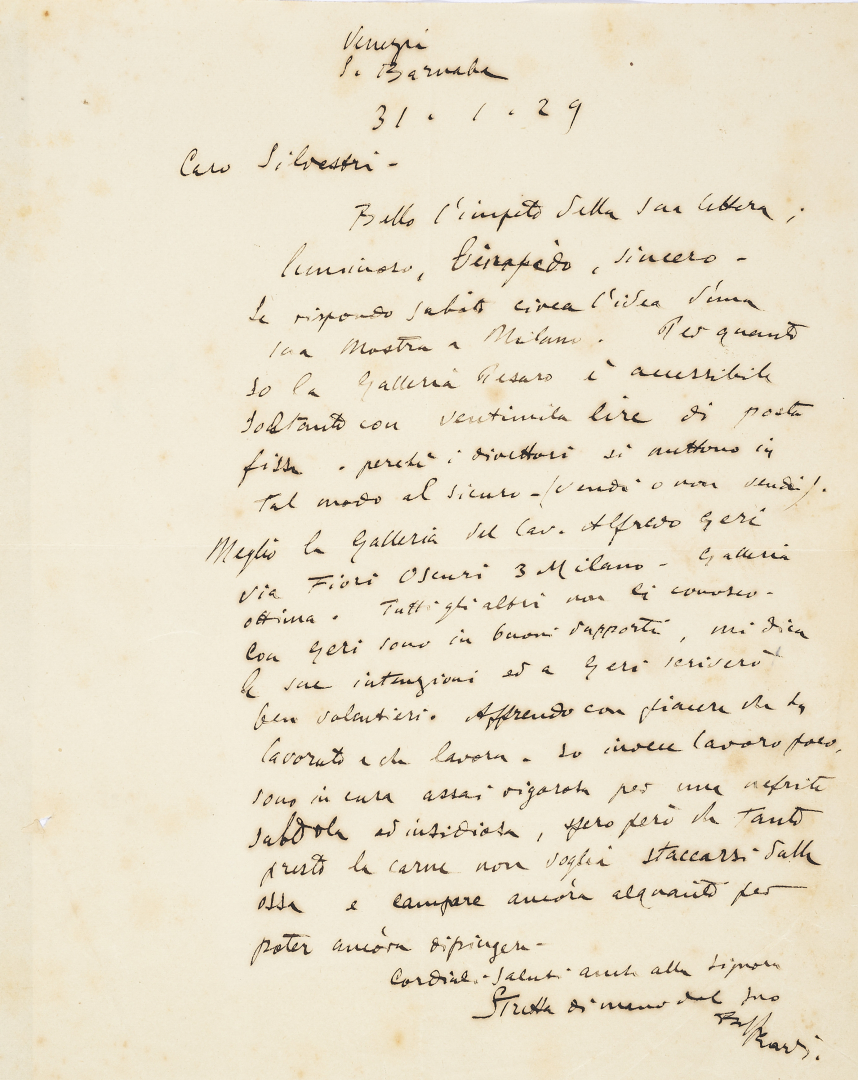 Venezia
S. Barnaba
31. 1. 29
Caro Silvestri -
Bello l'impeto della sua lettera;
luminoso, sincero -
Le rispondo subito circa l'idea d'una
sua mostra a Milano. Per quanto
so la Galleria Pesaro è accessibile
soltanto con ventimila lire di posta
fissa - perchè i direttori si mettono in
tal modo al sicuro - (vendi o non vendi).
Meglio la Galleria del Cav. Alfredo Geri
via Fiori Oscuri 3 Milano - Galleria
ottima. Tutti gli altri non li conosco -
Con Geri sono in buoni rapporti, mi dica
le sue intenzioni ed a Geri scriverò
ben volentieri. Apprendo con piacere che ha
lavorato e che lavora - Io invece lavoro poco,
sono in cura assai rigorosa per una nefrite
subdola ed insidiosa, spero però che tanto
presto la carne non voglia staccarsi dalle
ossa e campare ancòra alquanto per
poter ancòra dipingere -
Cordiali saluti anche alla Signora
Stretta di mano dal suo